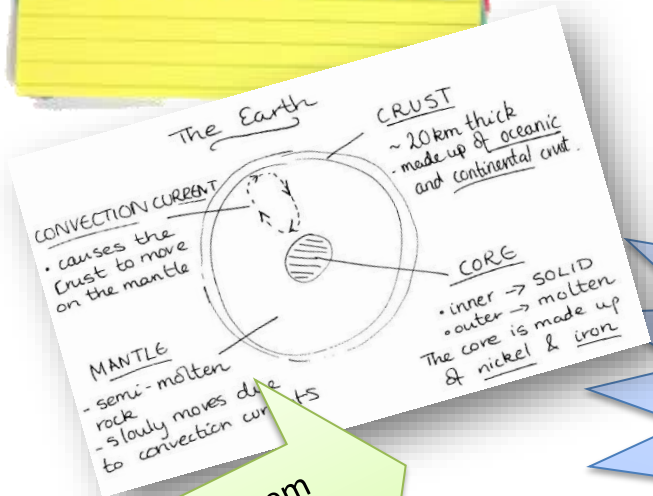 The Earth
CRUST
~ 20km thick
- made up of oceanic
and continental crust.
CONVECTION CURRENT
• causes the
crust to move
on the mantle
CORE
• inner → SOLID
• outer → molten
The core is made up
of nickel & iron
MANTLE
- semi-molten
rock
- slowly moves due
to convection